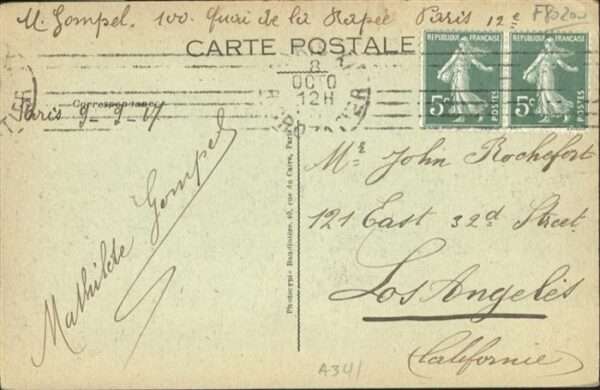 M. Gompel. 100. Quai de la Rapée Paris 12e
F80200
CARTE POSTALE
8
OCT 0
12H
Correspondance
Paris 9-9-17
Mathilde Gompel
Photocypie Baudinière, 40, rue du Caire, Paris
REPUBLIQUE FRANÇAISE
5c
POSTES
REPUBLIQUE FRANÇAISE
5c
POSTES
Mr John Rochefort
121 East 32d Street
Los Angelés
Californie
A341